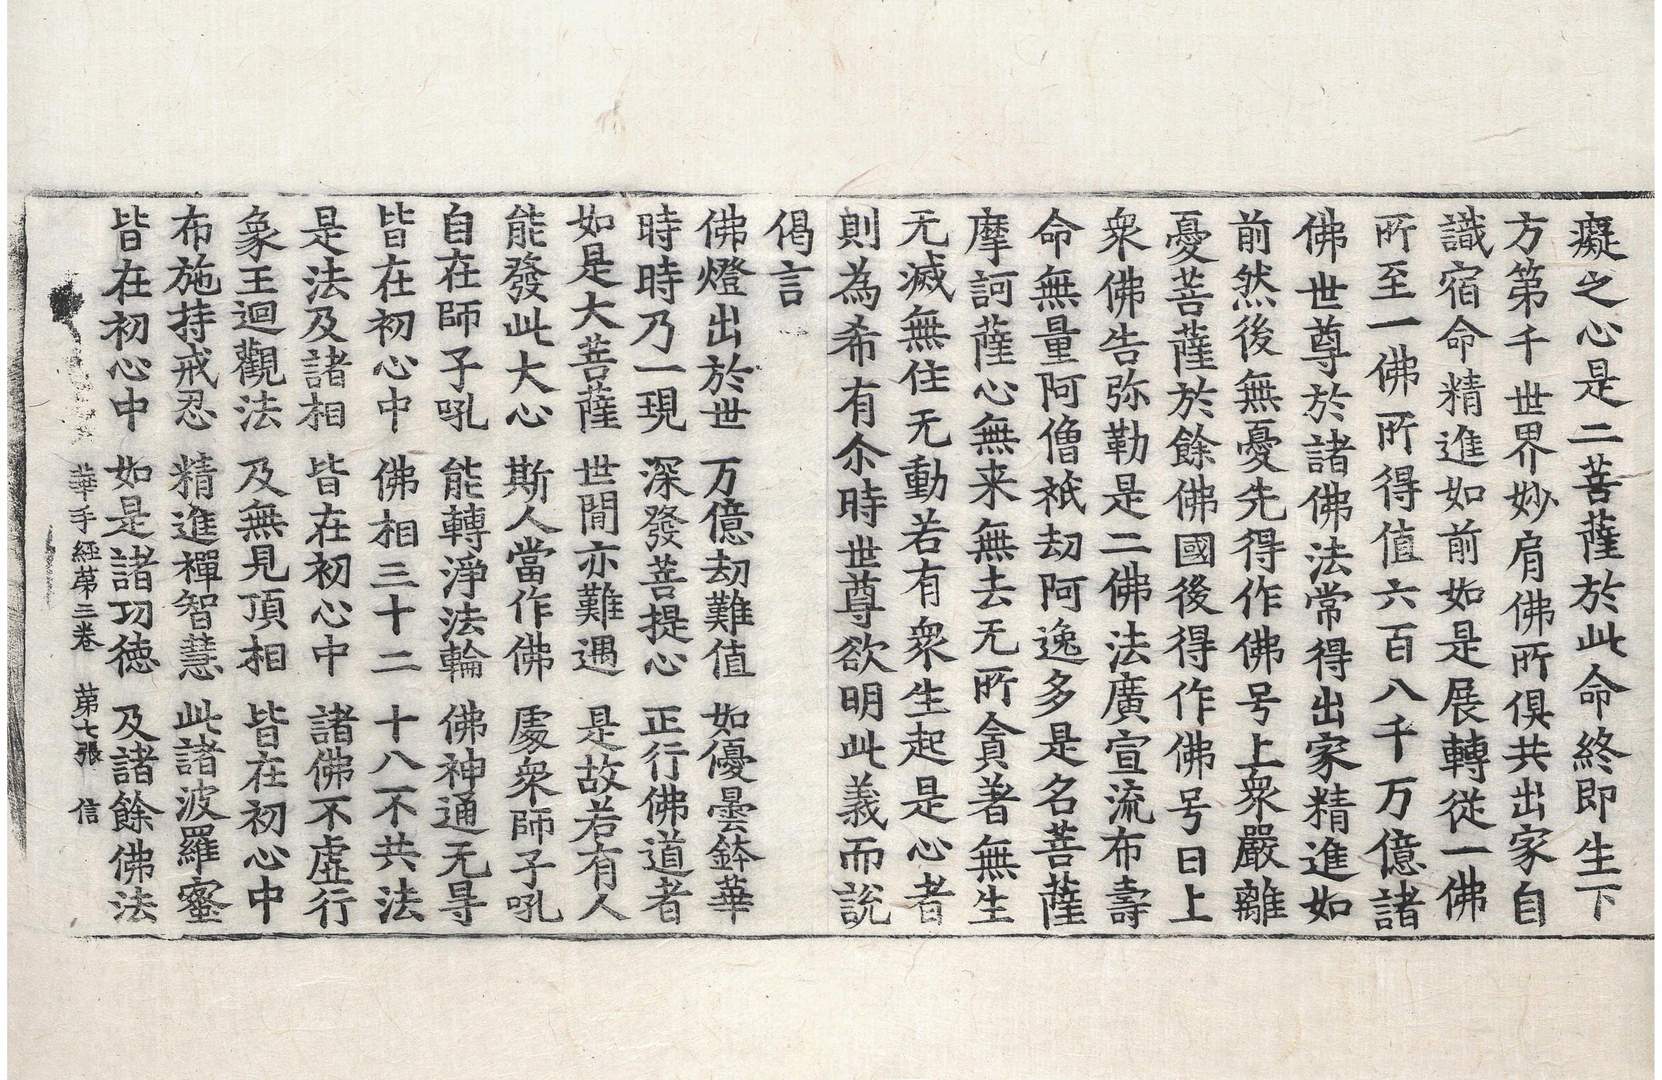 癡之心是二菩薩於此命終即生下
方第千世界妙肩佛所俱共出家自
識宿命精進如前如是展轉從一佛
所至一佛所所得值六百八千万億諸
佛世尊於諸佛法常得出家精進如
前然後無憂先得作佛号上衆嚴離
憂菩薩於餘佛國後得作佛号曰上
衆佛告弥勒是二佛法廣宣流布壽
命無量阿僧祇劫阿逸多是名菩薩
摩訶薩心無来無去无所貪著無生
无滅無住无動若有衆生起是心者
則為希有尒時世尊欲明此義而說
偈言
佛燈出於世 万億劫難值 如優曇鉢華
時時乃一現 深發菩提心 正行佛道者
如是大菩薩 世間亦難遇 是故若有人
能發此大心 斯人當作佛 處衆師子吼
自在師子吼 能轉淨法輪 佛神通无㝵
皆在初心中 佛相三十二 十八不共法
是法及諸相 皆在初心中 諸佛不虛行
象王迴觀法 及無見頂相 皆在初心中
布施持戒忍 精進禪智慧 此諸波羅蜜
皆在初心中 如是諸功德 及諸餘佛法
華手經第三卷 第七張 信